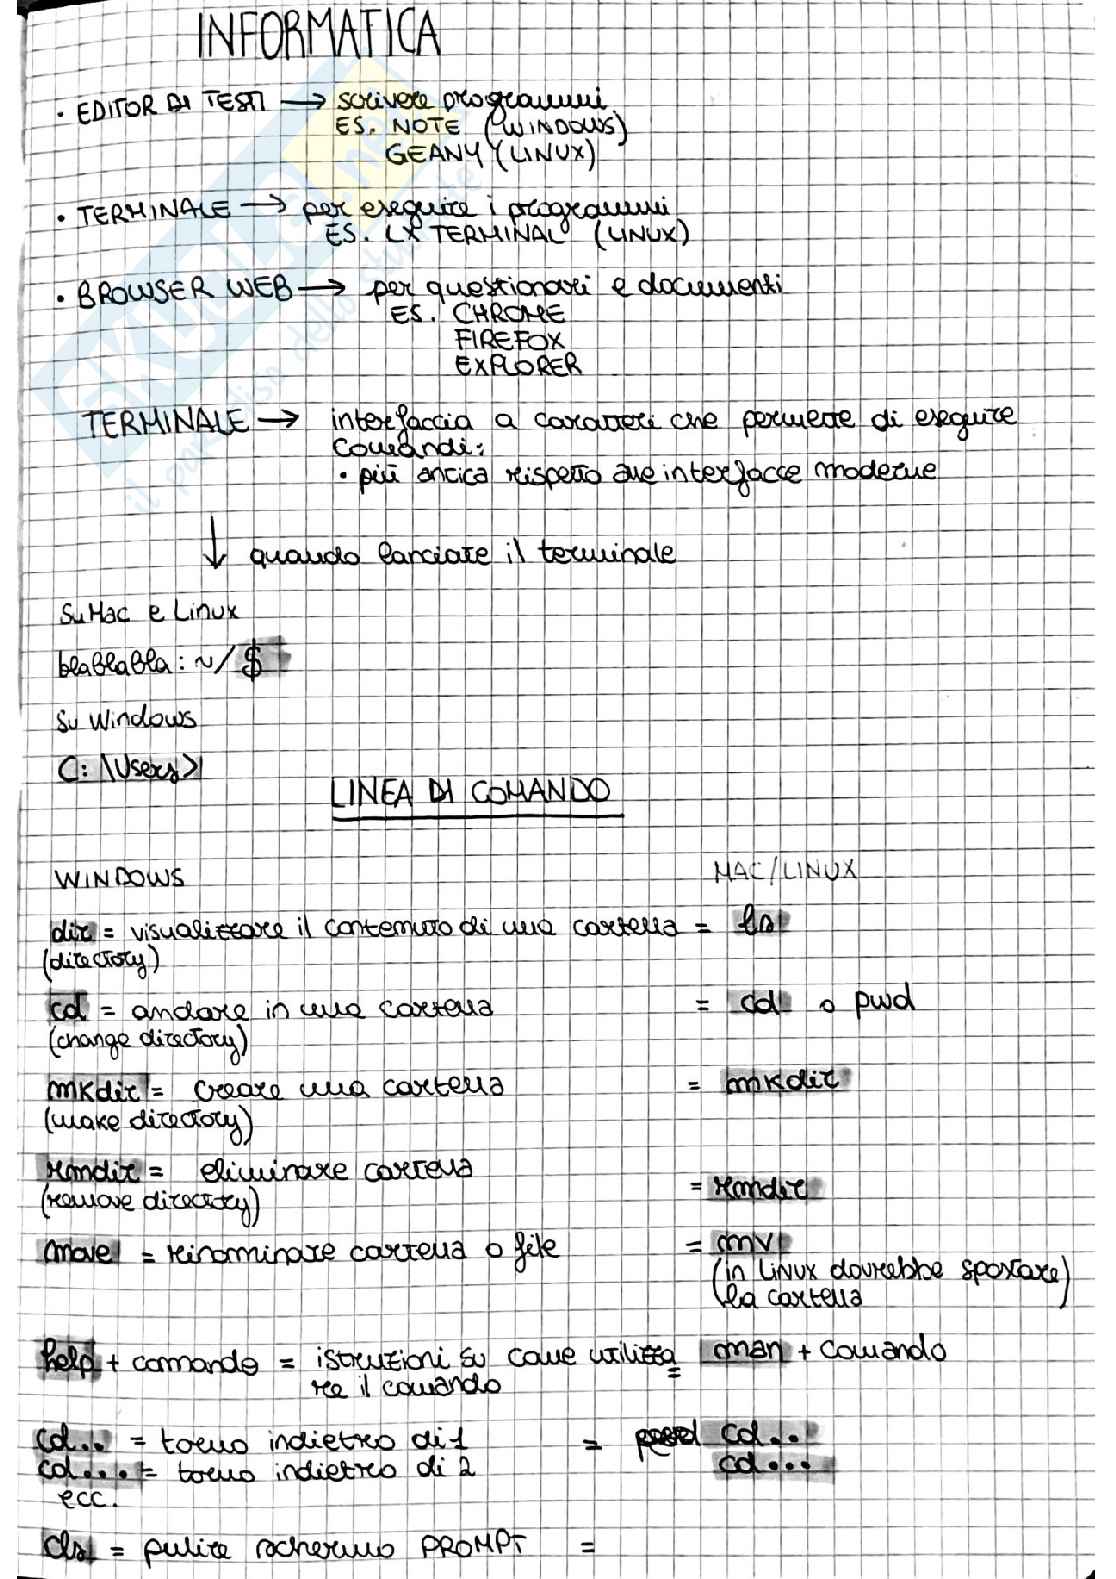 INFORMATICA
• EDITOR DI TESTI → scrivere programmi
ES. NOTE (WINDOWS)
GEANY (LINUX)
• TERMINALE → per eseguire i programmi
ES. LX TERMINAL (LINUX)
• BROWSER WEB → per questionari e documenti
ES. CHROME
FIREFOX
EXPLORER
TERMINALE → interfaccia a caratteri che permette di eseguire
comandi:
• più antica rispetto alle interfacce moderne
↓ quando lanciate il terminale
Su Mac e Linux
blablabla: ~/$
Su Windows
C:\Users>
LINEA DI COMANDO
WINDOWS MAC/LINUX
dir = visualizzare il contenuto di una cartella = ls
(directory)
cd = andare in una cartella = cd o pwd
(change directory)
mkdir = creare una cartella = mkdir
(make directory)
rmdir = eliminare cartella = rmdir
(remove directory)
move = rinominare cartella o file = mv
(in Linux dovrebbe spostare)
la cartella
help + comando = istruzioni su come utilizza = man + comando
re il comando
cd.. = torno indietro di 1 = cd..
cd... = torno indietro di 2 cd...
ecc.
cls = pulire schermo PROMPT =